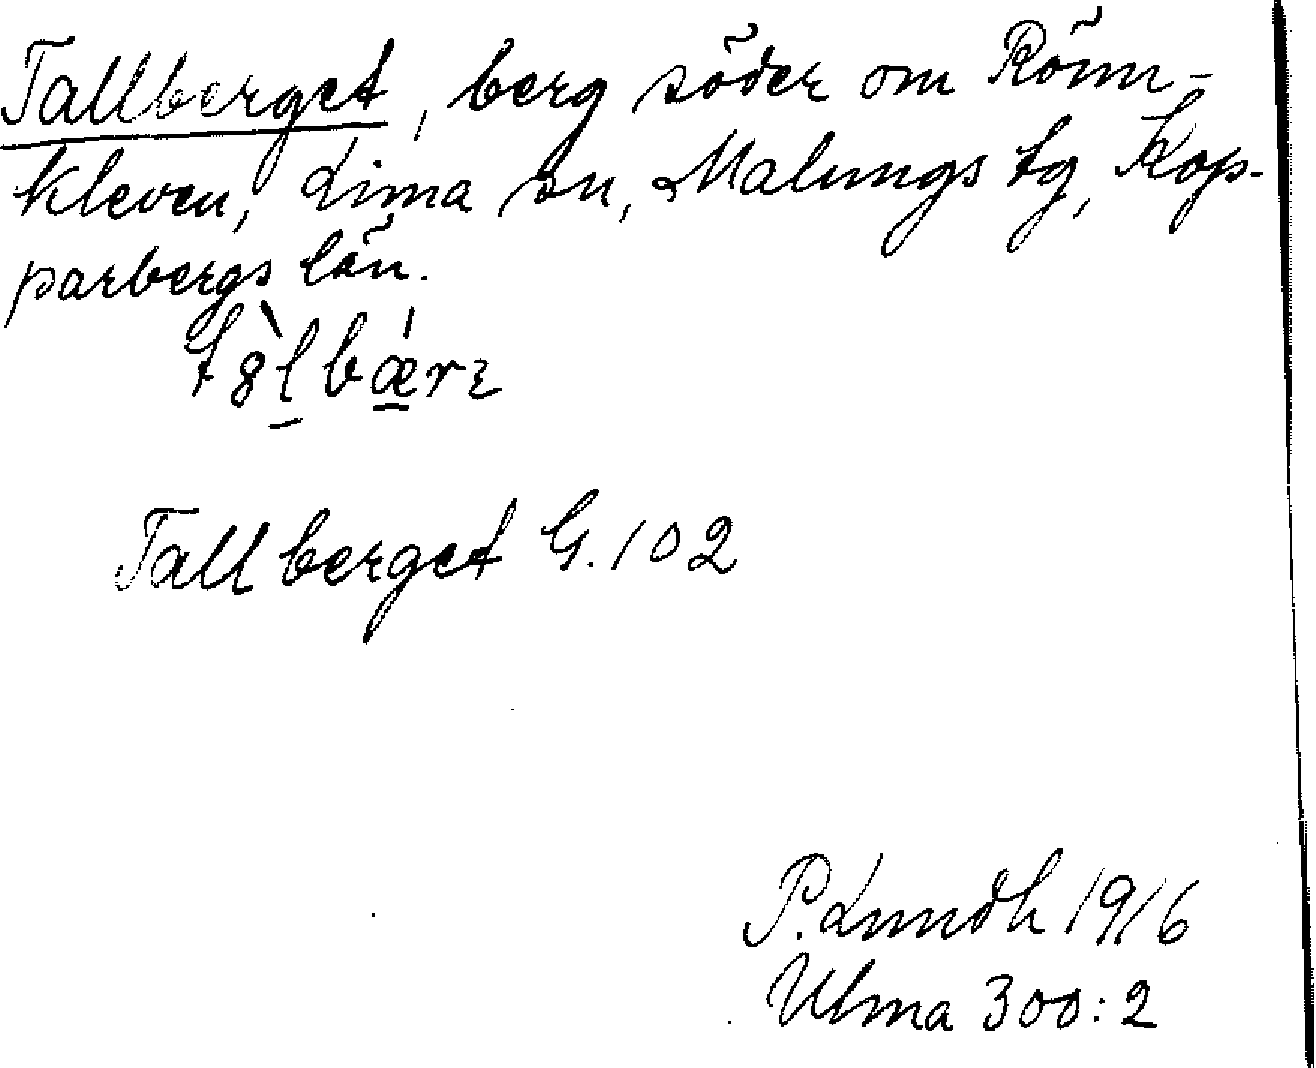 Tallberget, berg söder om Rönn-
kleven, Lima sn, Malungs tg, Kop-
parbergs län.
Tallberget G. 102
P. Lundh 1916
Ulma 300:2